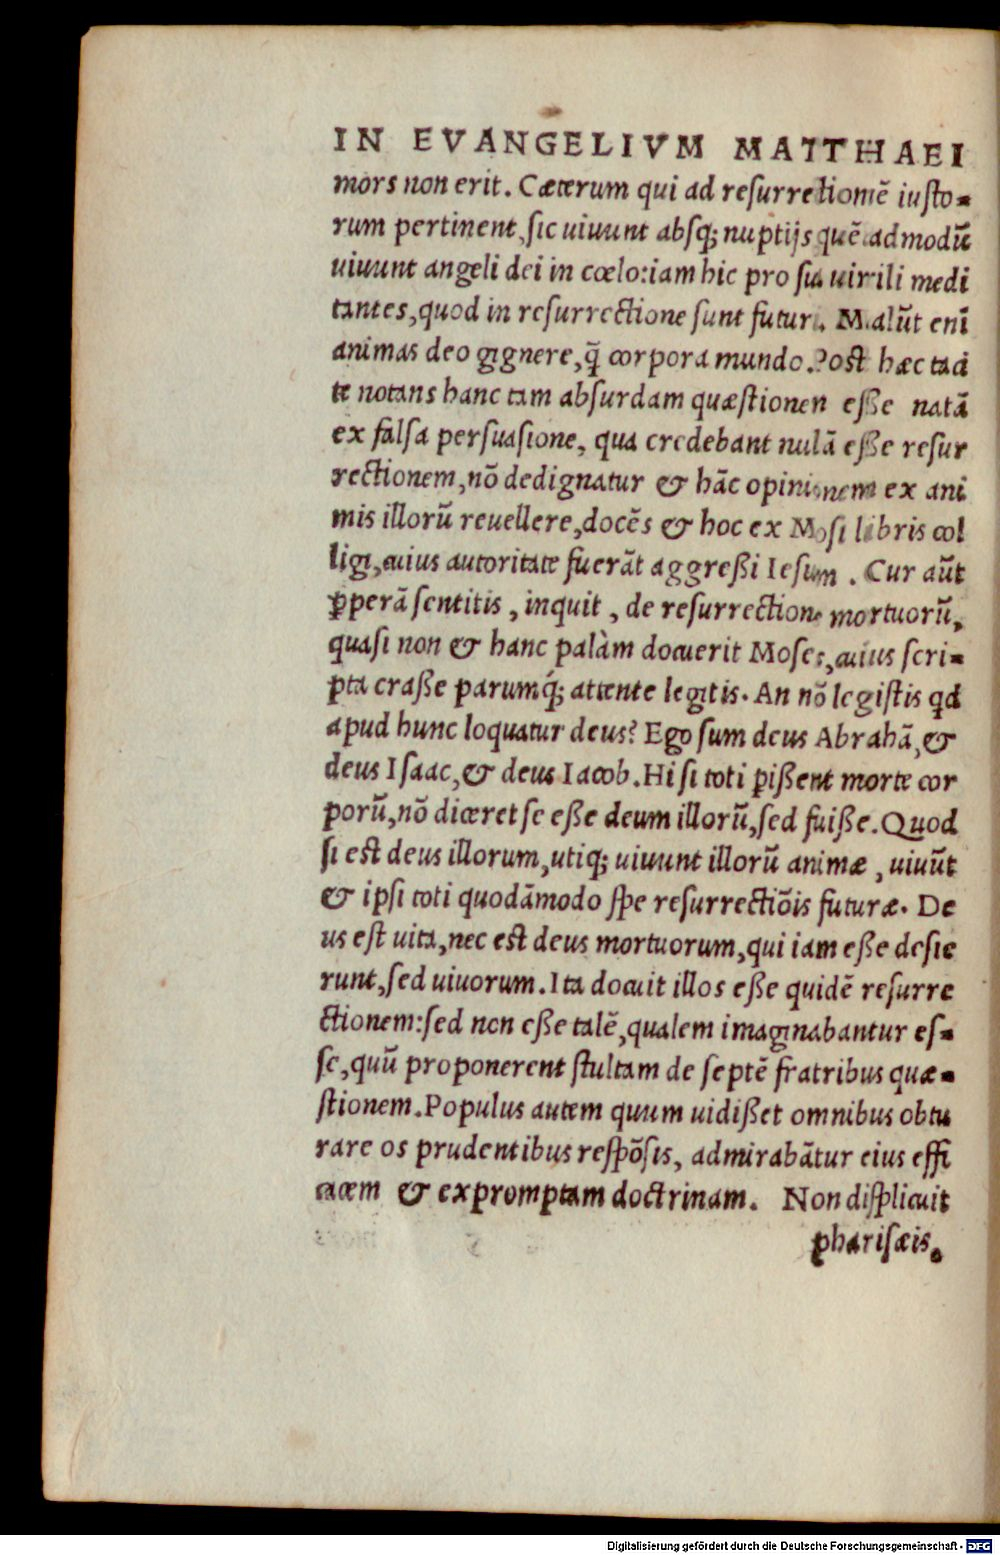 IN EVANGELIVM MATTHAEI
mors non erit. Cæterum qui ad resurrectionē iusto-
rum pertinent, sic uiuunt absq; nuptijs quēadmodū
uiuunt angeli dei in cœlo: iam hic pro sua uirili medi
tantes, quod in resurrectione sunt futuri. Malūt enī
animas deo gignere, q̄ corpora mundo. Post hæc taci
te notans hanc tam absurdam quæstionem esse natā
ex falsa persuasione, qua credebant nulā esse resur
rectionem, nō dedignatur & hāc opinionem ex ani
mis illorū reuellere, docēs & hoc ex Mosi libris col
ligi, cuius autoritate fuerāt aggressi Iesum. Cur aūt
ꝑperā sentitis, inquit, de resurrectione mortuorū,
quasi non & hanc palàm docuerit Moses, cuius scri-
pta crasse parumq́; attente legitis. An nō legistis qd
apud hunc loquatur deus? Ego sum deus Abrahā, &
deus Isaac, & deus Iacob. Hi si toti ꝑissent morte cor
porū, nō diceret se esse deum illorū, sed fuisse. Quod
si est deus illorum, utiq; uiuunt illorū animæ, uiuūt
& ipsi toti quodāmodo spe resurrectiōis futuræ. De
us est uita, nec est deus mortuorum, qui iam esse desie
runt, sed uiuorum. Ita docuit illos esse quidē resurre
ctionem: sed non esse talē, qualem imaginabantur es-
se, quū proponerent stultam de septē fratribus quæ-
stionem. Populus autem quum uidisset omnibus obtu
rare os prudentibus respōsis, admirabātur eius effi
cacem & expromptam doctrinam. Non displicuit
pharisæis,
Digitalisierung gefördert durch die Deutsche Forschungsgemeinschaft - DFG